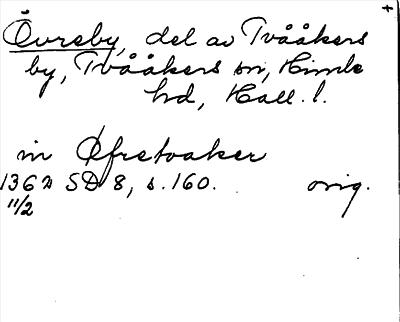 +
Övreby, del av Tvååkers
by, Tvååkers sn, Himle
hd, Hall. l.
in Øfretvaker
1362 SD 8, s. 160. orig.
11/2